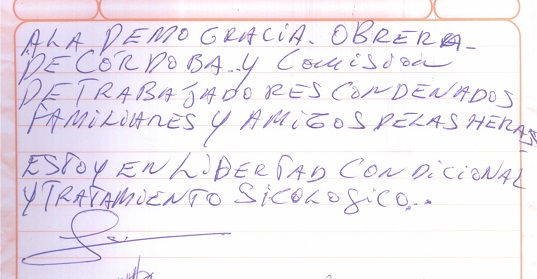 ALA DEMOGRACIA. OBRERA-
DECORDOBA. Y COMiSiON
DETRABAJADORES CONDENADOS
FAMILIARES Y AMIGOS DELAS HERAS
ESTOY EN LIBERTAD CONDICIONAL
YTRATAMIENTO SICOLOGICO..